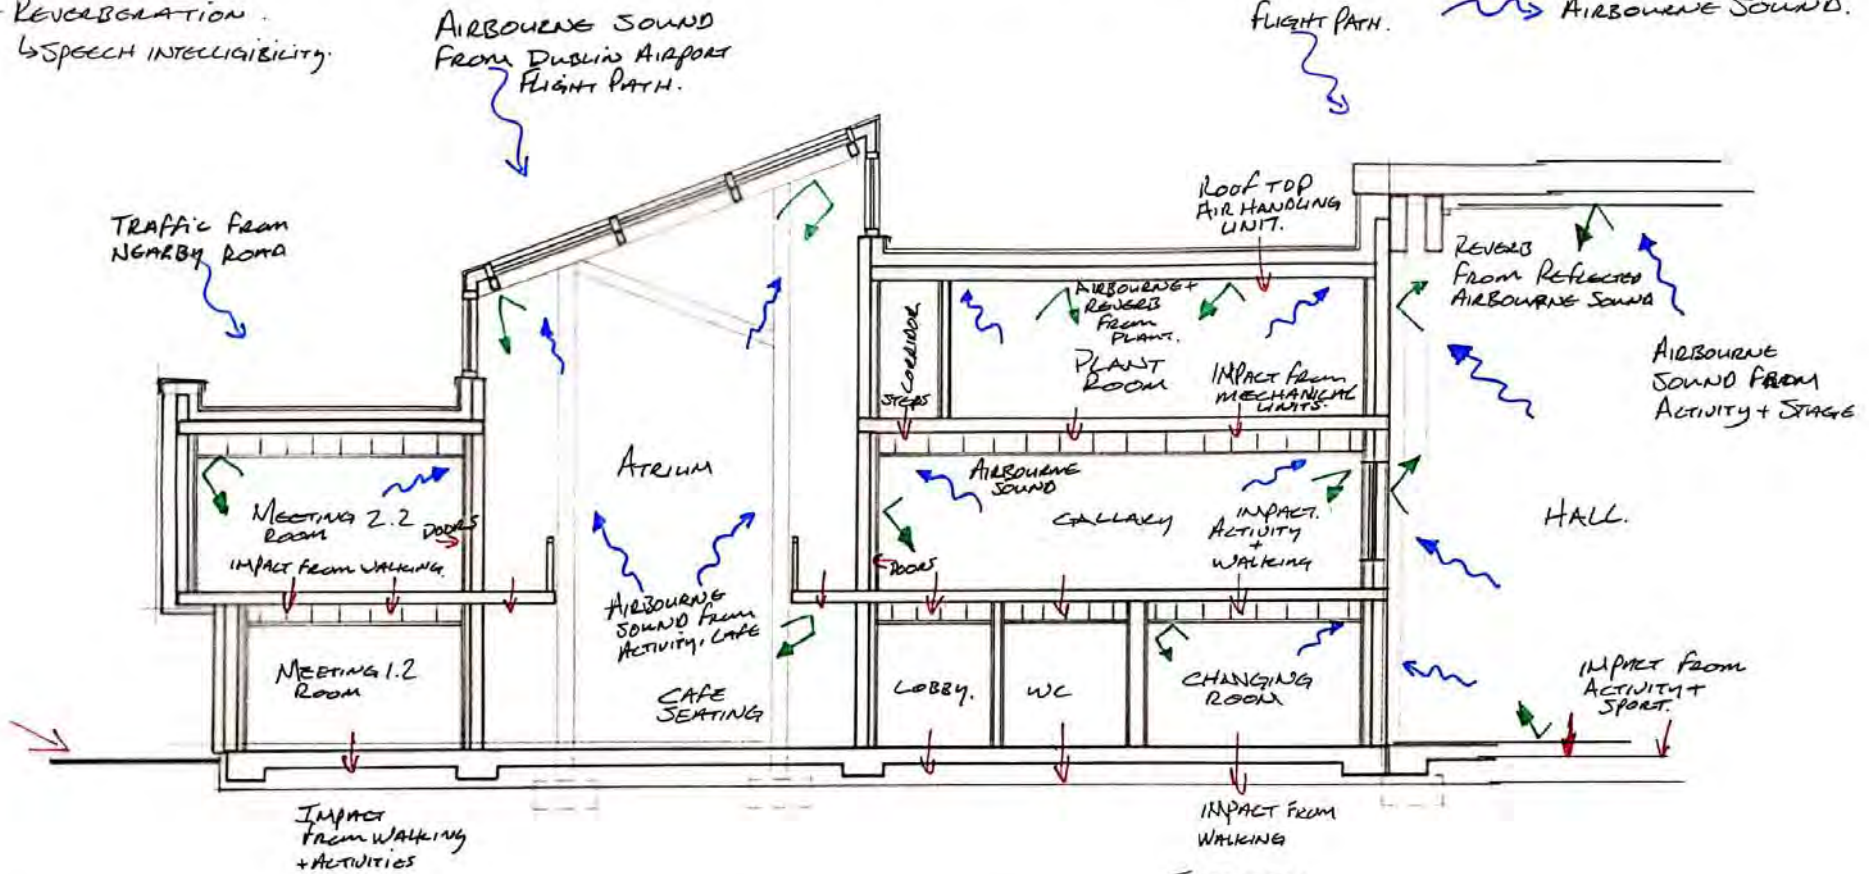 - REVERBERATION.
↳ SPEECH INTELLIGIBILITY.
AIRBOURNE SOUND
FROM DUBLIN AIRPORT
FLIGHT PATH.
FLIGHT PATH.
AIRBOURNE SOUND.
TRAFFIC FROM
NEARBY ROAD
ROOF TOP
AIR HANDLING
UNIT.
REVERB
FROM REFLECTED
AIRBOURNE SOUND
AIRBOURNE +
REVERB
FROM
PLANT.
CORRIDOR
STEPS
PLANT
ROOM
IMPACT FROM
MECHANICAL
UNITS.
AIRBOURNE
SOUND FROM
ACTIVITY + STAGE
ATRIUM
AIRBOURNE
SOUND
MEETING 2.2
ROOM
DOORS
IMPACT FROM WALKING.
GALLARY
IMPACT.
ACTIVITY
+
WALKING
DOORS
HALL.
AIRBOURNE
SOUND FROM
ACTIVITY, CAFE
MEETING 1.2
ROOM
CAFE
SEATING
LOBBY.
WC
CHANGING
ROOM
IMPACT FROM
ACTIVITY +
SPORT.
IMPACT
FROM WALKING
+ ACTIVITIES
IMPACT FROM
WALKING